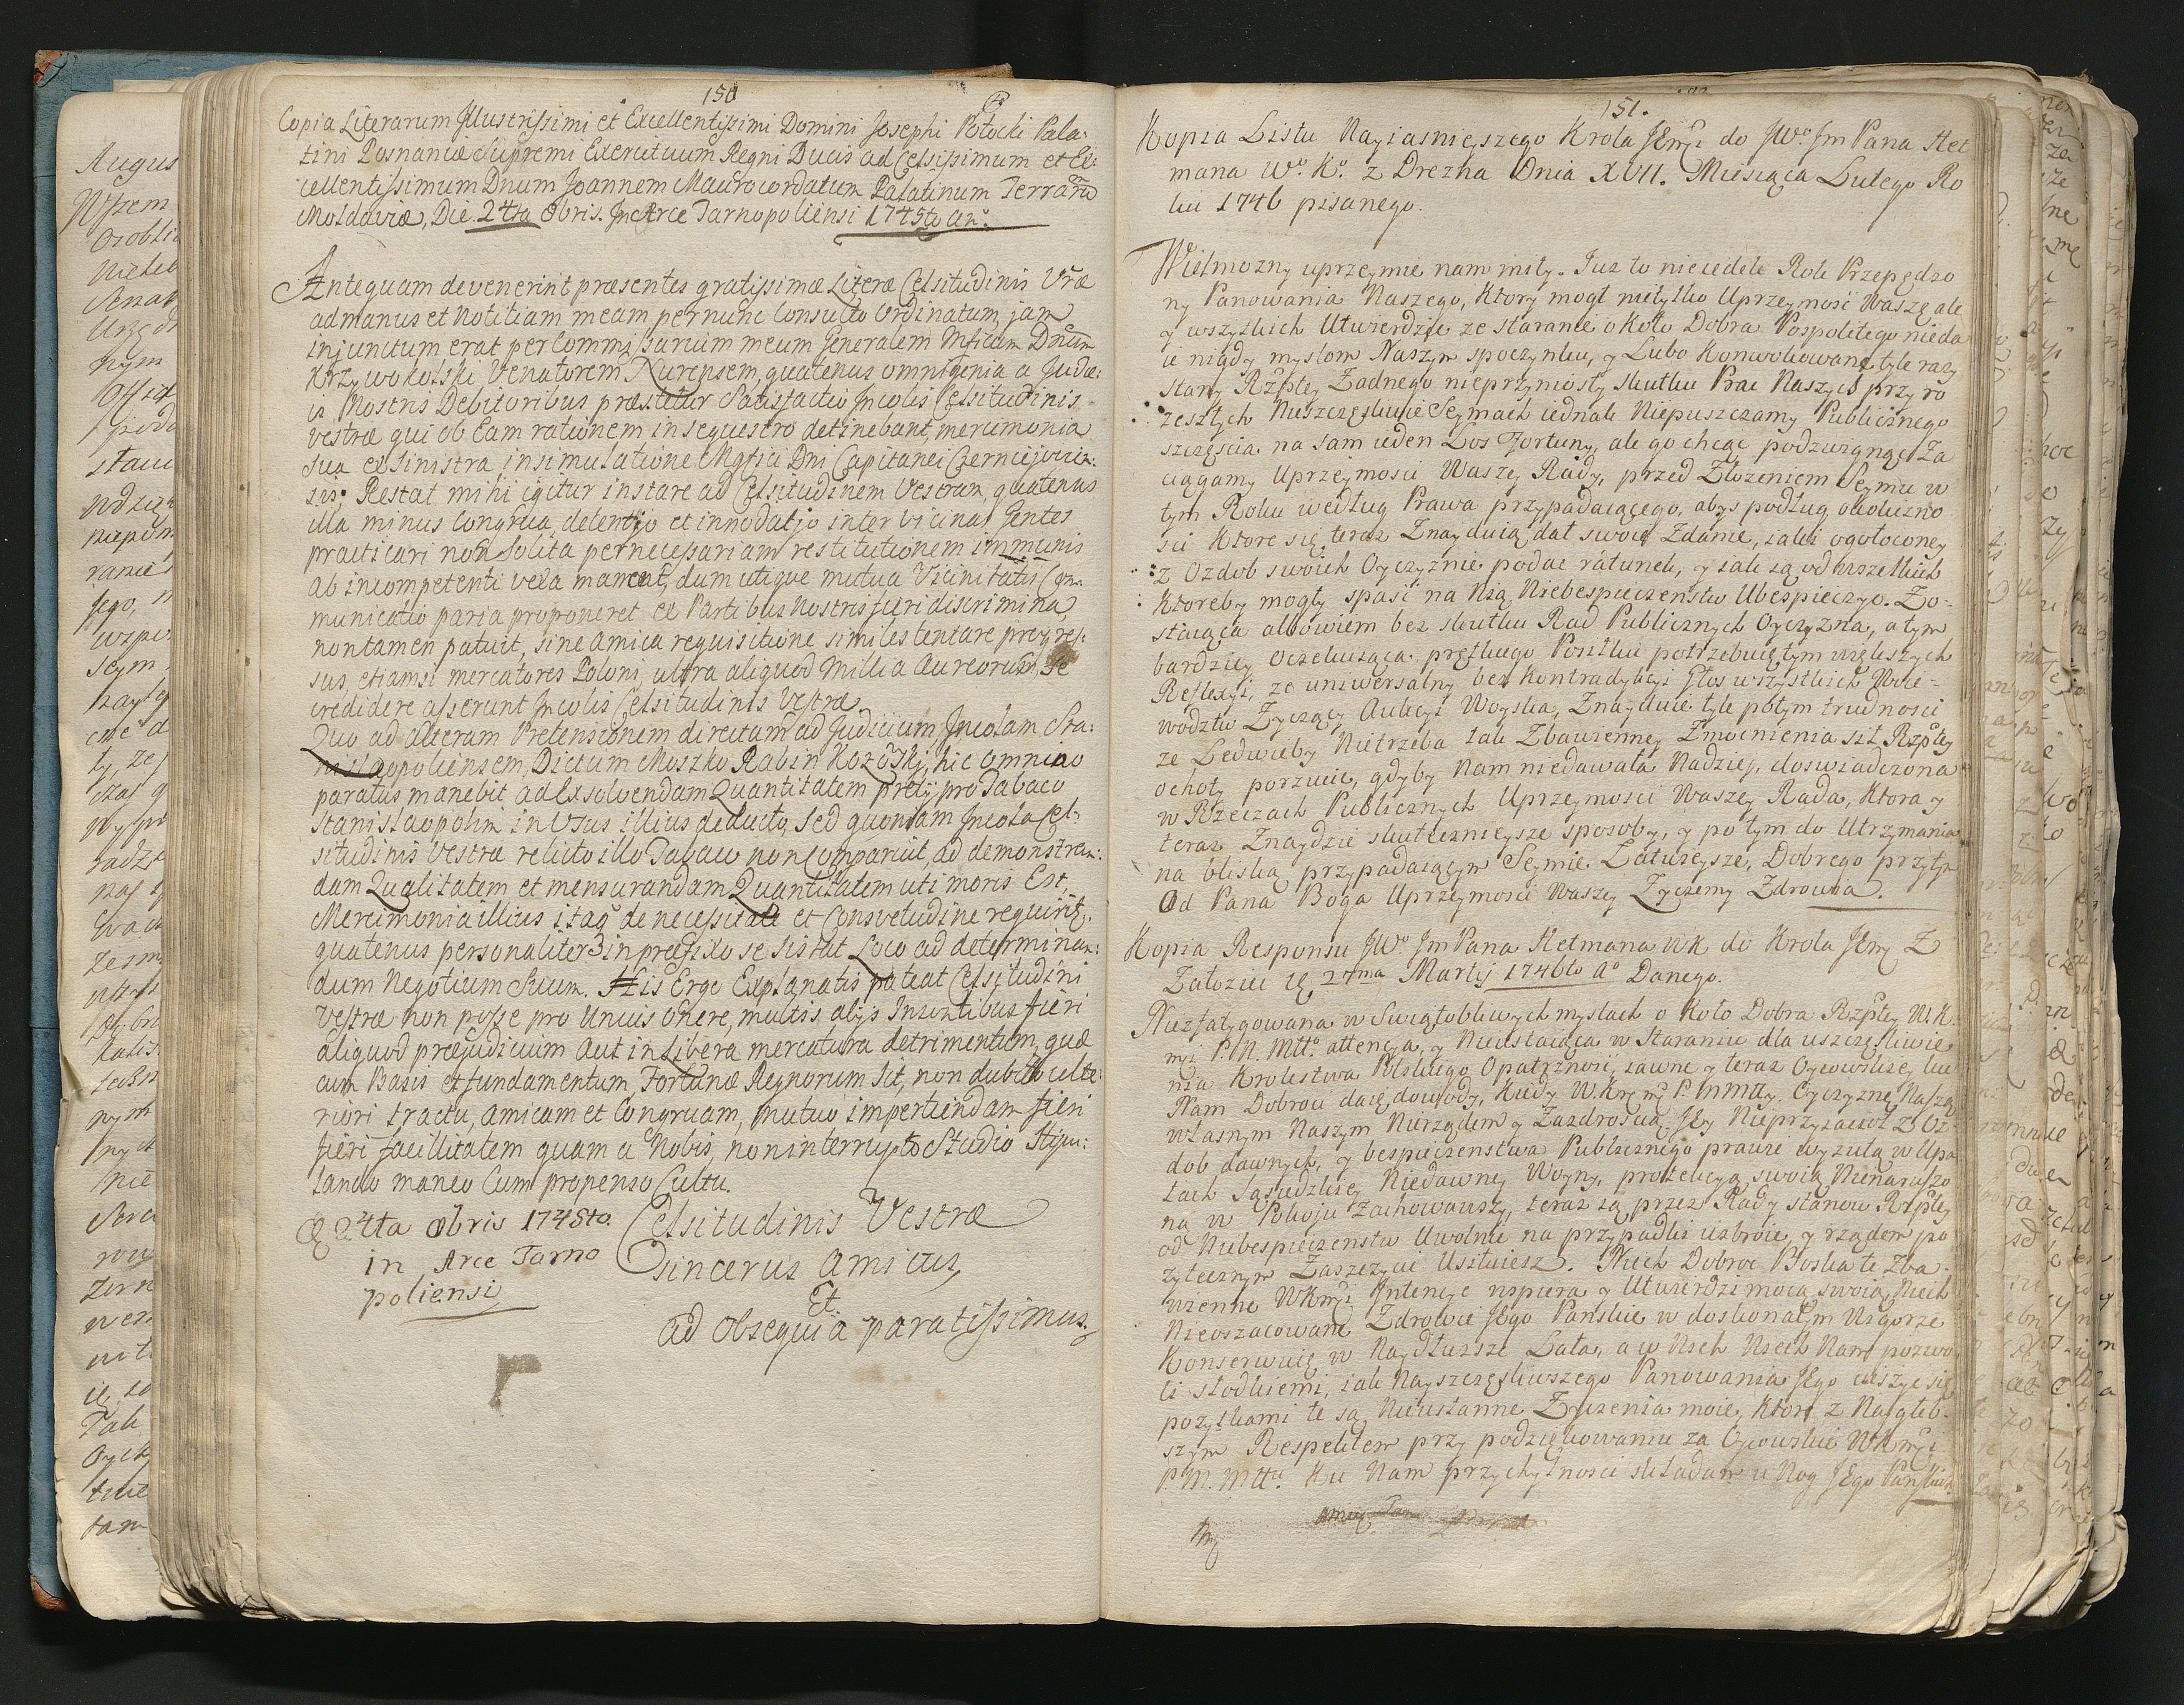 150
Copia Literarum Illustrissimi et Excellentissimi Domini Josephi Potocki Pala:
tini Posnaniæ Supremi Exercituum Regni Ducis ad Celsissimum et Ex:
cellentissimum Dnum Joannem Maurocordatum Palatinum Terrarũ
Moldaviæ, Die 24ta 8bris. In Arce Tarnopoliensi 1745to An:
Antequam devenerint præsentes gratissimæ Literæ Celsitudinis Vræ
ad manus et Notitiam meam pernunc Consulto Ordinatum, jam
injunctum erat per Commissarium meum Generalem Mficum Dnum
Krzywokolski Venatorem Nurensem, quatenus omnigenia a Judæ:
is Nostris Debitoribus præstetur Satisfactio Incolis Celsitudinis
vestræ qui ob Eam rationem in sequestro detinebant, mercimonia
sua ex Sinistra insimulatione Mgfici Dni Capitanei
sis. Restat mihi igitur instare ad Celsitudinem Vestram, quatenus
illa minus Congrua, detentjo et innodatjo inter Vicinas Gentes
practicari non Solita pernecessariam restitutionem immunis
ab incompetenti vexa maneat, dum utique mutua Vicinitatis Com
municatio paria proponeret ex Partibus Nostris fieri discrimina,
non tamen patuit, sine amica requisitione similes tentare progres:
sus, etiamsi mercatores Poloni, ultra aliquod Millia Aureorum, se
credidere asserunt Incolis Celsitudinis Vestræ.
Quo ad alteram Pretensionem directam ad Judicium Incolam Sta:
nislaopoliensem, Dictum Moszko Rabin Kozoski, hic omnino
paratus manebit ad Exsolvendam Quantitatem pretij pro Tabaco
Stanislaopolim in Usus illius deducto, Sed quoniam Incola Cel:
situdinis Vestræ relicto illo Tabaco non Compariit, ad demonstran:
dam Qualitatem et mensurandam Quantitatem uti moris Est,
Mercimonia illius itaq de necessitate et Consvetudine requirit,
quatenus personaliter in præfixo se sistat Loco ad determinan:
dum Negotium Suum. His Ergo Explanatis pateat Celsitudini
Vestræ non posse pro Unius Onere, multis alijs Insontibus fieri
aliquod præjudicium Aut in Libera mercatura detrimentum, quæ
cum Basis et fundamentum Fortunæ Regnorum Sit, non dubito ulte:
riori tractu, amicam et Congruam, mutuo impertiendam fieri
fieri facillitatem quam a Nobis, non interrupto Studio Stipu:
lando maneo Cum propenso Cultu.
24ta 8bris 1745to.
in Arce Tarno
poliensi
Celsitudinis Vestræ
Sincerus Amicus,
Et
ad Obsequia paratissimus.
151.
Kopia Listu Nayiasnieyszego Krola JEmci do JWo Jm Pana Het
mana Wo. Ko. z Drezna Dnia XVII. Miesiąca Lutego Ro
ku 1746 pisanego.
Wielmozny uprzeymie nam miły. Juz to niejeden Rok Przepędzo
ny Panowania Naszego, Ktory mogł nietylko Uprzeymość Waszę ale
y wszystkich Utwierdzić ze staranie około Dobra Pospolitego nieda
ie nigdy myslom Naszym spoczynku, y Lubo Konwokowane tyle razy
stany Rzptey Zadnego nieprzyniosły skutku Prac Naszych przy ro
zeszłych Nieszczęsliwie Seymach iednak Niepuszczamy Publicznego
szczęscia na sam ieden Los Fortuny, ale go chcąc podzwignąc Za
ciągamy Uprzeymosci Waszey Rady, przed Złozeniem Seymu w
tym Roku według Prawa przypadaiącego, abys podług okolizno
sci Ktore się teraz Znayduią, dał swoie Zdanie, iako ogołoconey
z Ozdob swoich Oyczyznie podac ratunek, y iak ią od wszelkich
Ktoreby mogły spasć na Nią Niebespieczenstw Ubespieczyc. Zo-
staiąca albowiem bez skutku Rad Publicznych Oyczyzna, a tym
bardziey Oczekuiąca prętkiego Posiłku potrzebuie tym większych
Reflexyi, ze uniwersalny bez Kontradykcyi Głos wszystkich Woie-
wodztw Zyczący Aukcyi Woyska, Znayduie tyle potym trudnosci
ze Ledwieby Nietrzeba tak Zbawienney Zmocnienia sił Rzptey
ochoty porzucic, gdyby Nam niedawała Nadzieje, doswiadczona
w Rzeczach Publicznych Uprzeymosci Waszey Rada, Ktora y
teraz Znaydzie skutecznieysze sposoby, y po tym do Utrzymania
na blisko przypadaiącym Seymie Łatwieysze, Dobrego przytym
Od Pana Boga Uprzeymosci Waszey Zyczemy Zdrowia.
Kopia Responsu JWo Jm Pana Hetmana WK do Krola JEmci Z
Załoziec 27ma Martij 1746to Ao Danego.
Niezfatygowana w Swiątobliwych myslach o Koło Dobra Rzptey W.K.
mci P.M. Mtto. attencya, y Nieustaiąca w Staraniu dla uszczęsliwie
nia Krolestwa Polskiego Opatrznosć, iawne y teraz Oycowskiey ku
Nam Dobroci daie dowody, Kiedy W.Krmci P.MMtty. Oyczyznę Naszą
własnym Naszym Nierządem y Zazdroscią Jey Nieprzyiacioł z Oz-
dob dawnych, y bespieczenstwa Publicznego prawie wyzutą w Upa
łach Sąsiedzkiey Niedawney Woyny, protekcyą swoią Nienaruszo
ną w Pokoju Zachowawszy, teraz ią przez Rady stanow Rzptey
od Niebespieczenstw Uwolnic na przypadki uzbroic, y rządem po
zytecznym Zaszczycic Usiłuiesz. Niech Dobroc Boska te Zba-
wienne WKmci Intencye wspiera y Utwierdzi mocą swoią, Niech
Nieoszacowane Zdrowie JEgo Panskie w doskonałym Wigorze
Konserwuie w Naydłuzsze Lata, a w Nich Niech Nam pozwo
li słodkiemi, iak Nayszczęsliwszego Panowania JEgo cieszyc się
pozytkami te są Nieustanne Zyczenia moie, Ktore z Nayglęb-
szym Respektem przy podziękowaniu za Oycowskie WKmci
P.M.Mttu. Ku Nam przychylnosci składam u Nog JEgo Panskich.